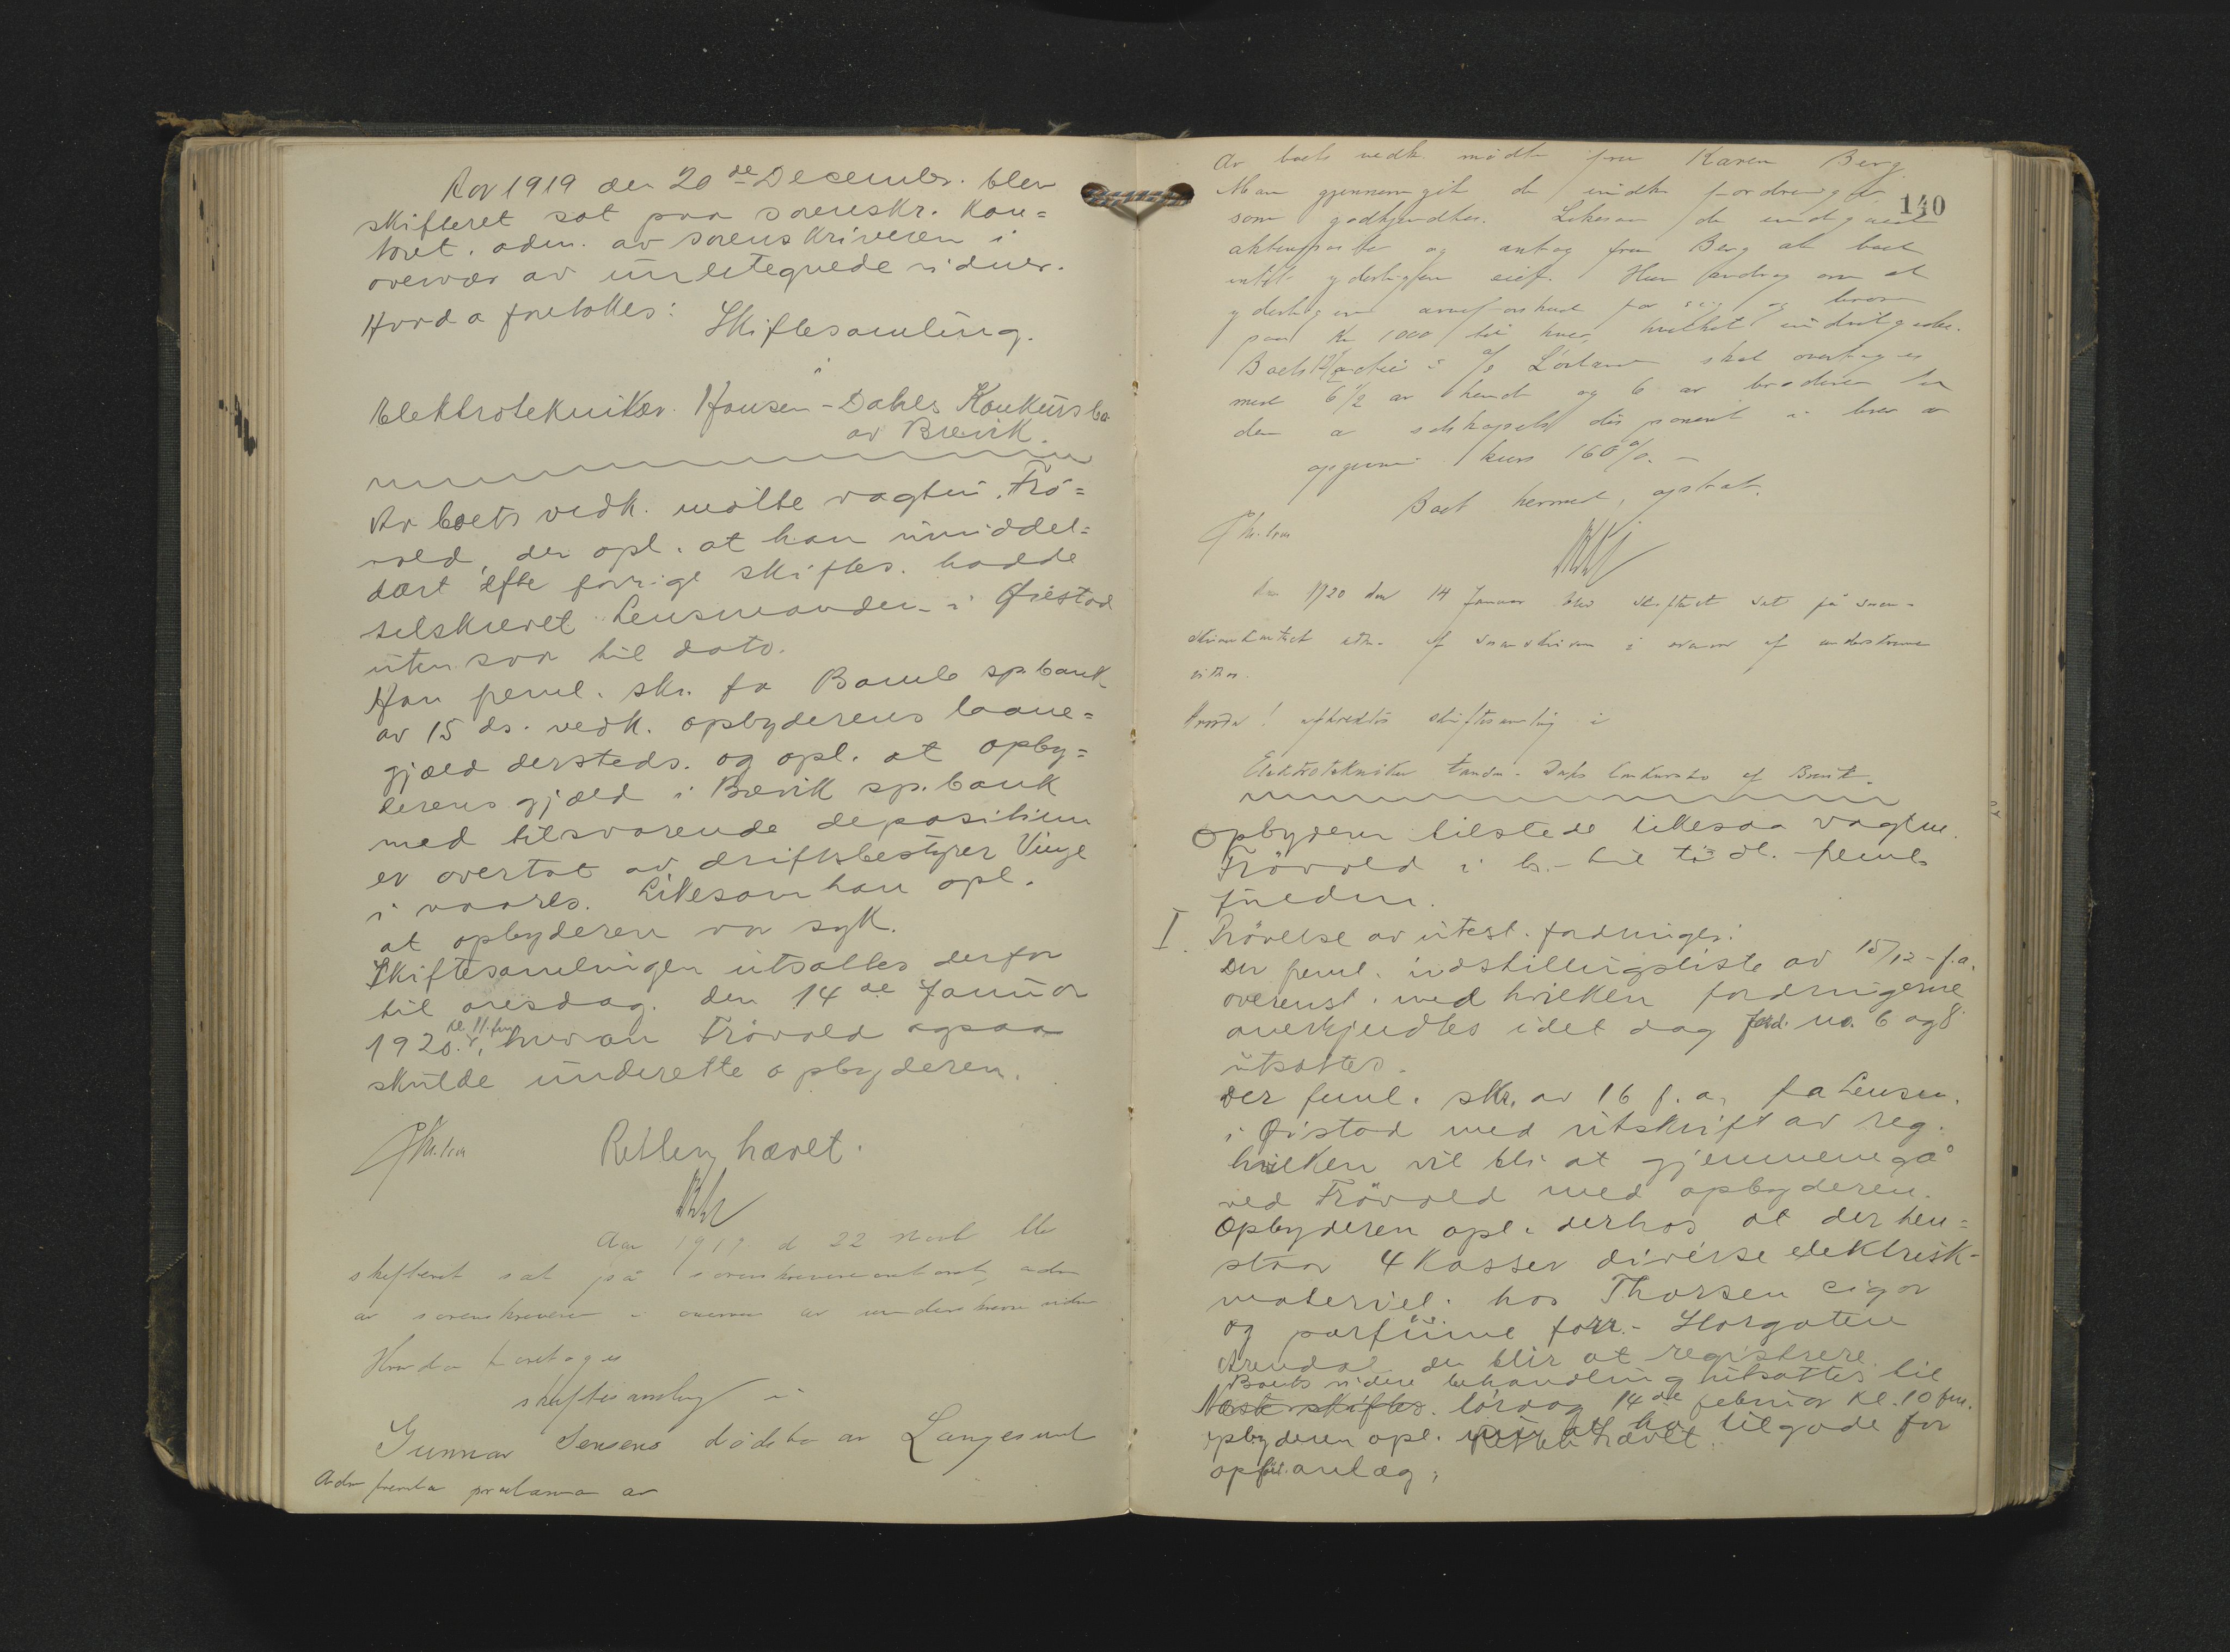 Aar 1919 den 20de December. blev
skifteret sat paa sorenskr. kon=
toret. adm. av sorenskriveren i
overvær av undertegnede vidner.
Hvorda foretokes:
Skiftesamling.
i
Elektrotekniker Hansen-Dahls Konkursbo
av Brevik.
Av boets vedk. mötte vagtm. Frö=
vold, der opl. at han umiddel=
bart efter forrige skiftes. hadde
tilskrevet Lensmanden i Øiestad
uten svar til dato.
Han freml. skr. fra Bamle sp.bank
av 15 ds. vedk. opbyderens laane=
gjæld dersteds. og opl. at opby=
derens gjæld i Brevik sp.bank
med tilsvarende depositum
er overtat av driftsbestyrer Vinje
i vaares. Likesom han opl.
at opbyderen var syk.
Skiftesamlingen utsattes derfor
til onsdag. den 14de Januar
1920. kl. 11 fm. hvorom Frövold ogsaa
skulde underette opbyderen.
Retten hævet.
Aar 1919 d 22 blev
skifteret sat på sorenskriverkontoret, adm
av sorenskriveren i overvær av underskrevne vidner
Hvorda foretoges
skiftesamling i
Gunnar Jensens dödsbo av Langesund
proclama av
140
Av boets vedk. mödte fru Karen Berg
Man gjennemgik de fordringer
som godkjendtes. Likesom de
aktieposter og fru Berg at boet
intet yderligere eied. Hun androg om at
yderligere arveforskud for sig og
paa kr 1000 til hver, hvilket
Boets 12½ aktie i A/S skal overtages
med 6½ av hende og 6 av broderen
den av selskapets disponent i brev av
opgivne kurs 160%. -
Boet hermed opstaat.
Aar 1920 den 14 Januar blev skifteret sat på soren-
skriverkontoret adm. af sorenskriveren i overvær af underskrevne
vidner.
Hvorda! afholdtes skiftesamling i
Elektrotekniker Hansen-Dahls konkursbo af Brevik.
Opbyderen tilstede likesaa vagtm.
Frövold i h. til tidl. freml.
I. Prövelse av utest. fordringer:
Der freml. indstillingsliste av 15/12 - f.a.
overenst. med hvilken fordringerne
anerkjendtes idet dog ford. no. 6 og 8
utsattes.
Der freml. skr. av 16 f.a. fra Lensm.
i Øistad med utskrift av reg.
hvilken vil bli at gjennemgå
ved Frövold med opbyderen.
Opbyderen opl. derhos at der hen=
staar 4 kasser diverse elektrisk-
materiel. hos Thorsen cigar
og parfüme forr.- Storgaten
Arendal der blir at registrere.
Boets videre behandling utsattes til
Næste skiftes. lördag 14de februar kl. 10 fm.
Retten hævet.
opbyderen opl. at ha tilgode for
anlæg.